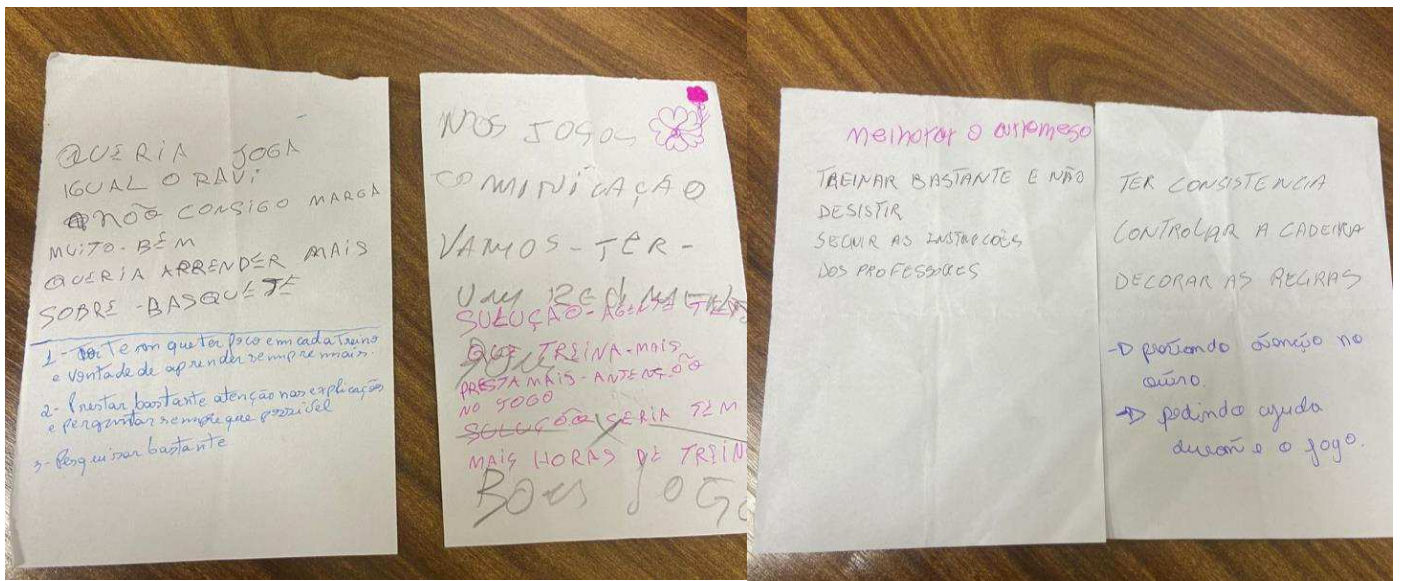 QUERIA JOGA
IGUAL O RAVI
NÃO CONSIGO MARGA
MUITO-BEM
QUERIA ARRENDER MAIS
SOBRE-BASQUETE
1- Tem que ter foco em cada treino
e vontade de aprender sempre mais.
2- Prestar bastante atenção nas explicações
e perguntar sempre que possível
3- Pesquisar bastante
NOS JOGOS
COMINICAÇÃO
VAMOS-TER-
UM
SULUÇÃO-AGENTE
QUE TREINA-MAIS
PRESTA MAIS-ANTENÇÃO
NO JOGO
SOLUÇÃO SERIA TEM
MAIS HORAS DE TREIN
BOM JOGO
Melhorar o arremeso
TREINAR BASTANTE E NÃO
DESISTIR
SEGUIR AS INSTRUCÕES
DOS PROFESSORES
TER CONSISTENCIA
CONTROLAR A CADEIRA
DECORAR AS REGRAS
no
pedindo ajuda
o jogo.